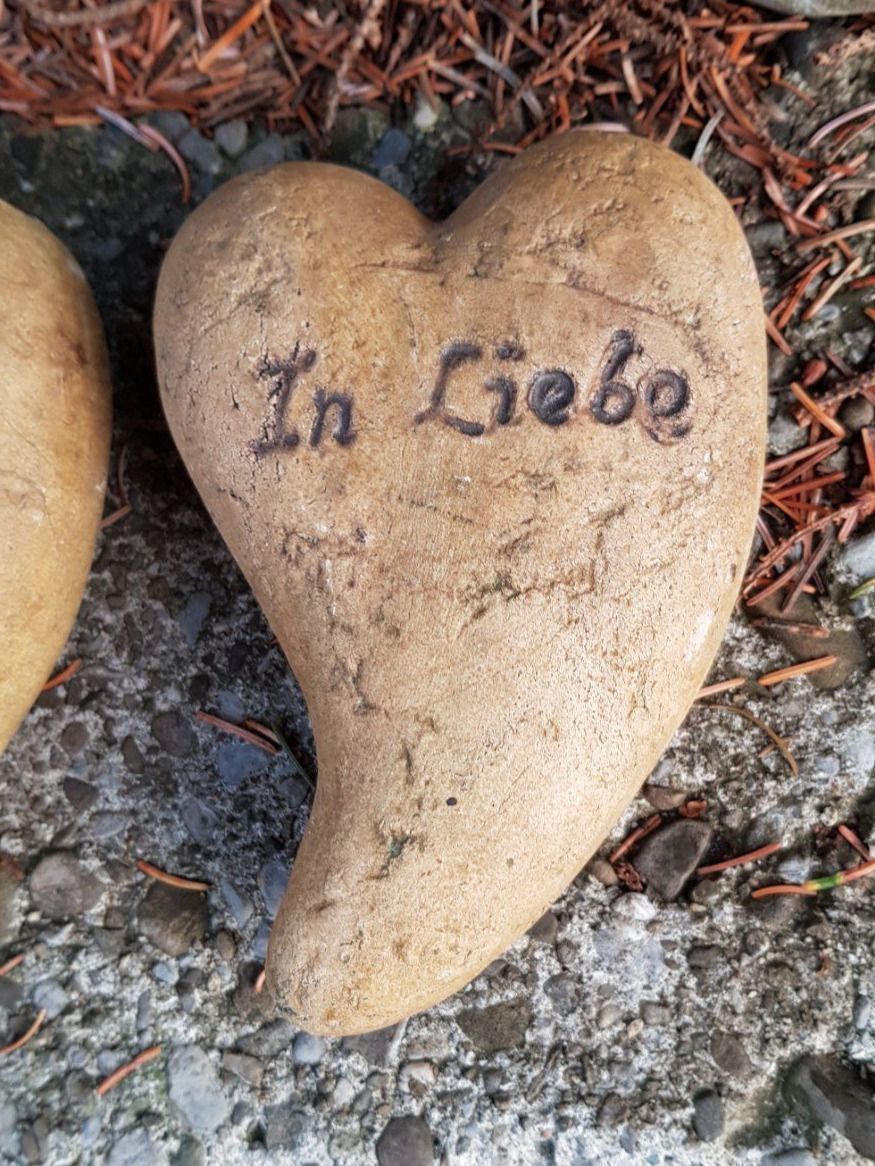 In Liebe